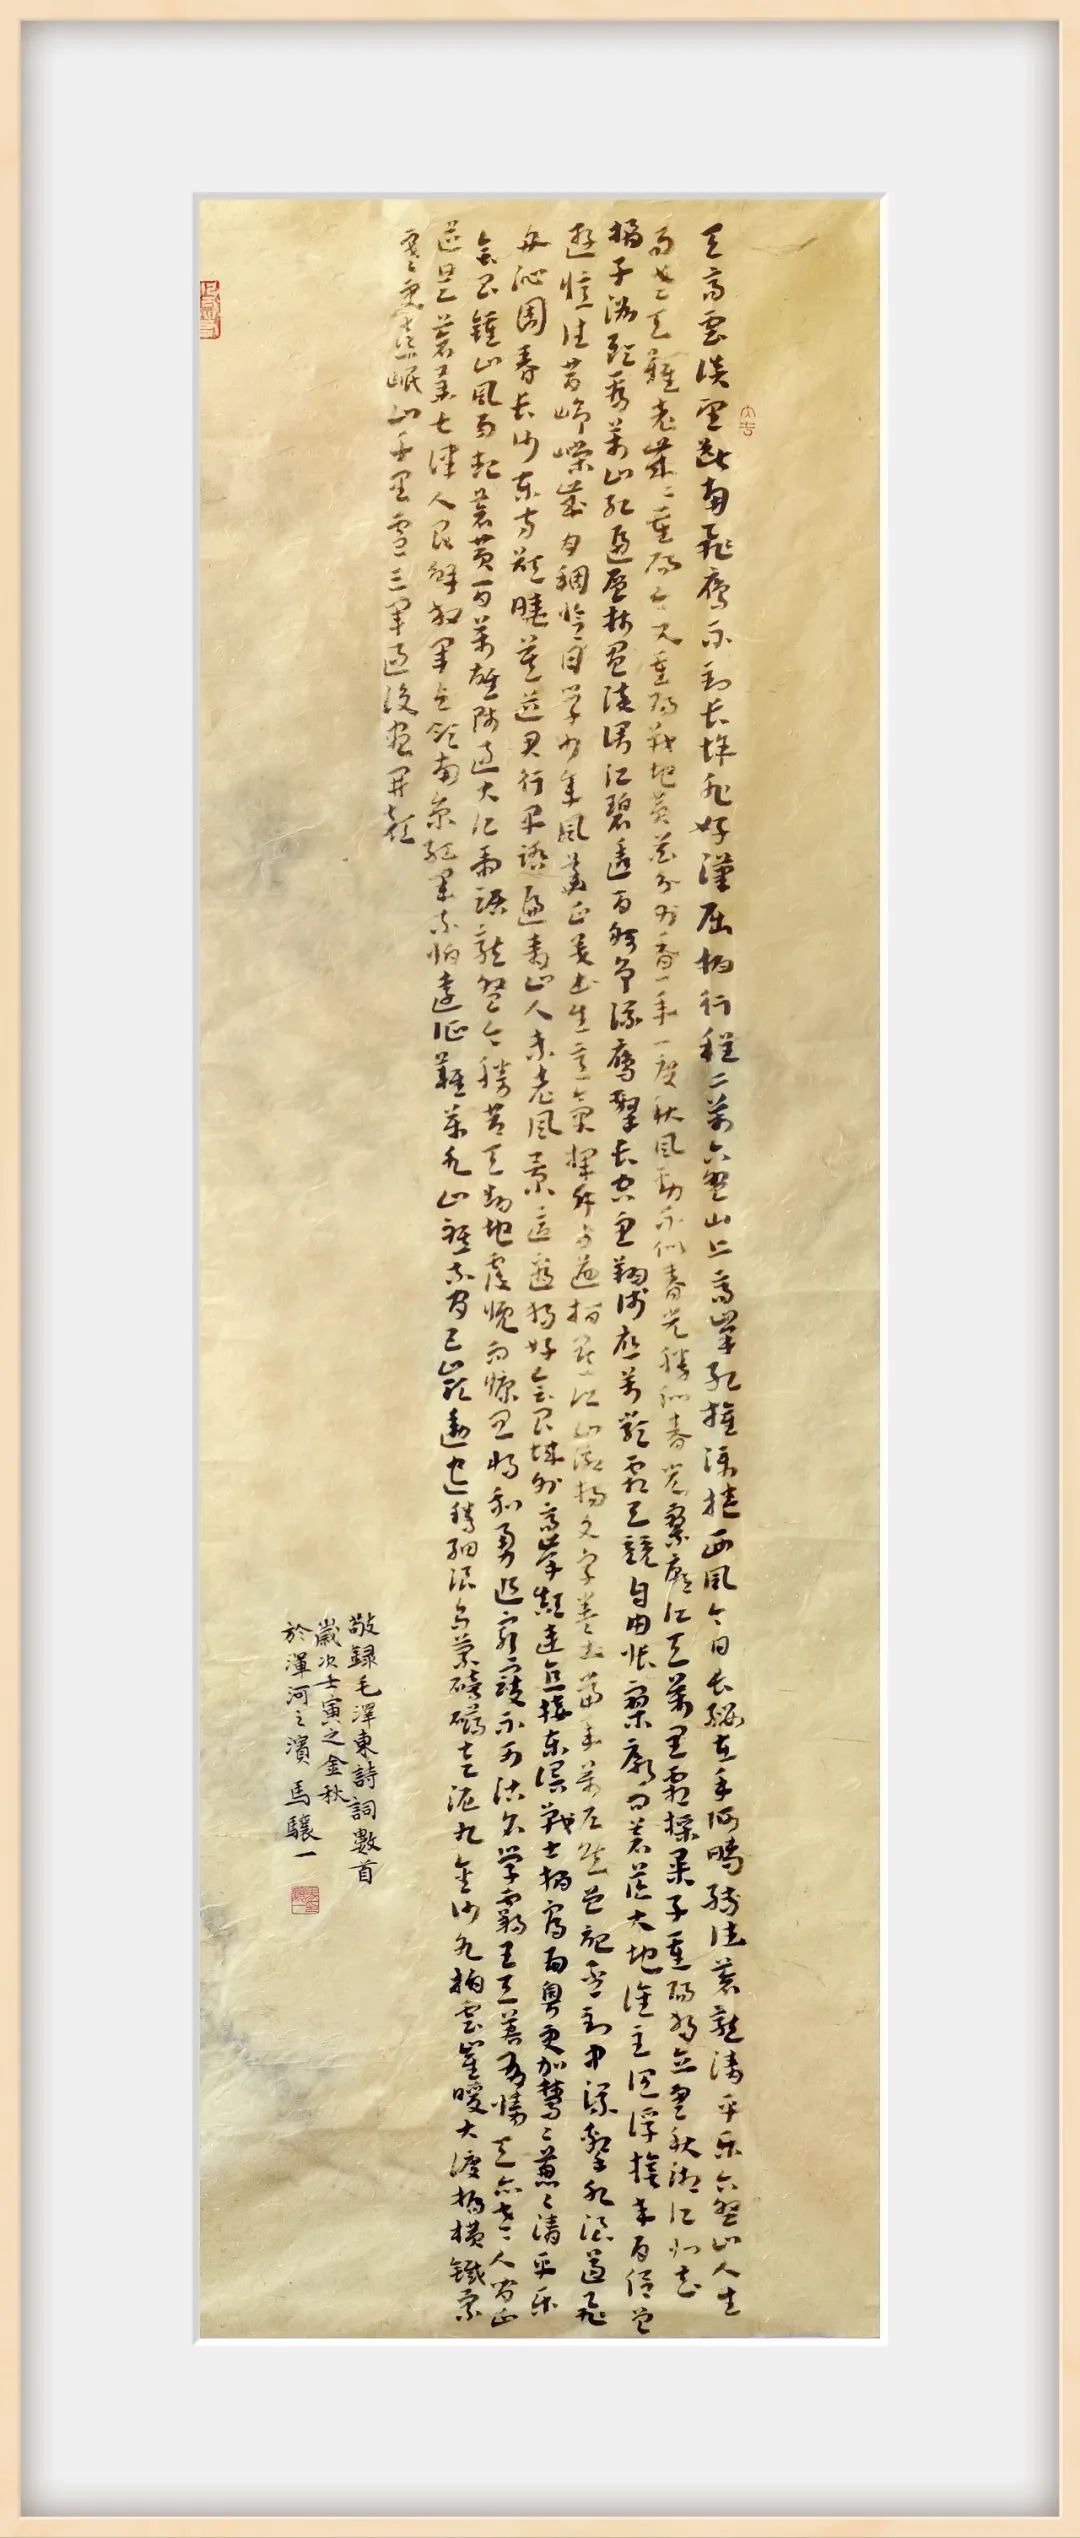 天高雲淡望斷南飛雁不到長城非好漢屈指行程二萬六盤山上高峰紅旗漫捲西風今日長纓在手何時縛住蒼龍清平樂六盤山人生
易老天難老歲〻重陽今又重陽戰地黃花分外香一年一度秋風勁不似春光勝似春光寥廓江天萬里霜採桑子重陽獨立寒秋湘江北去
橘子洲頭看萬山紅遍層林盡染漫江碧透百舸爭流鷹擊長空魚翔淺底萬類霜天競自由悵寥廓問蒼茫大地誰主沉浮攜來百侶曾
遊憶往昔崢嶸歲月稠恰同學少年風華正茂書生意氣揮斥方遒指點江山激揚文字糞土當年萬戶侯曾記否到中流擊水浪遏飛
舟沁園春長沙東方欲曉莫道君行早踏遍青山人未老風景這邊獨好會昌城外高峰顛連直接東溟戰士指看南粵更加鬱〻蔥〻清平樂
會昌鍾山風雨起蒼黃百萬雄師過大江虎踞龍盤今勝昔天翻地覆慨而慷宜將剩勇追窮寇不可沽名學霸王天若有情天亦老人間正
道是蒼桑七律人民解放軍占領南京紅軍不怕遠征難萬水山五嶺逶迤騰細浪烏蒙磅礴走泥丸金沙水拍雲崖暖大渡橋橫鐵索
寒更喜岷山千里雪三軍過後盡開顏
敬録毛澤東詩詞數首
歲次壬寅之金秋
於渾河之濱馬驤一
大吉